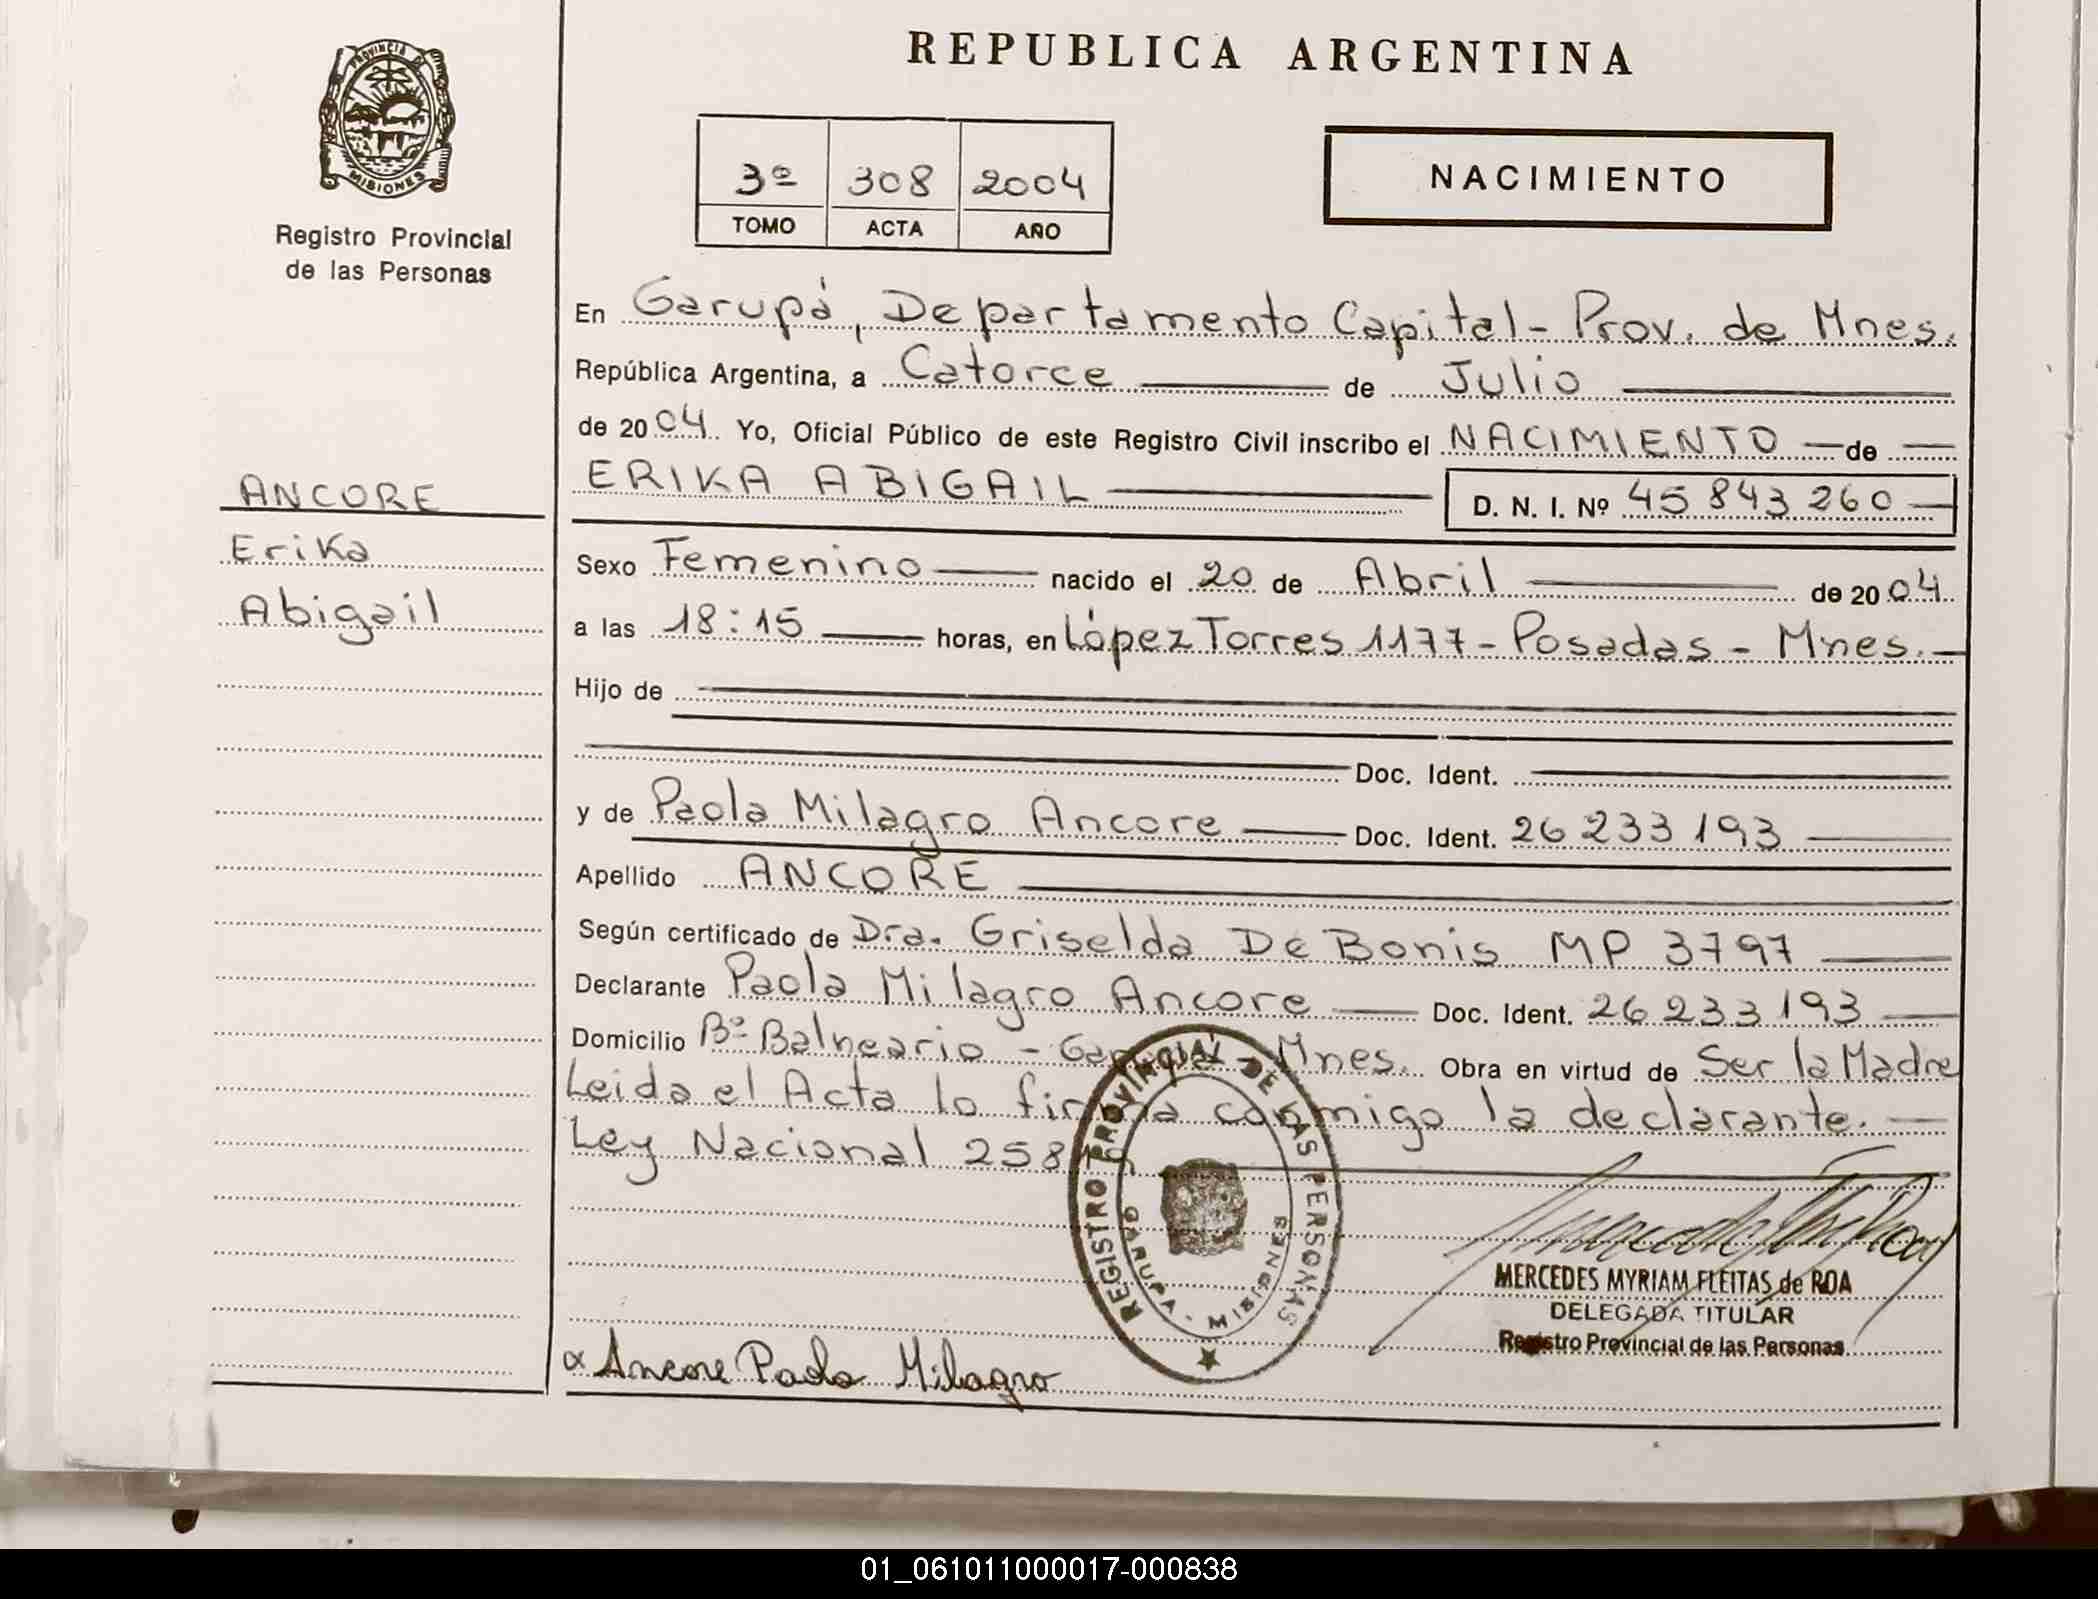 REPUBLICA ARGENTINA
PROVINCIA DE MISIONES
Registro Provincial
de las Personas
3º 308 2004
TOMO ACTA AÑO
NACIMIENTO
ANCORE
Erika
Abigail
En Garupá, Departamento Capital - Prov. de Mnes.
República Argentina, a Catorce de Julio
de 2004 Yo, Oficial Público de este Registro Civil inscribo el NACIMIENTO de
ERIKA ABIGAIL D. N. I. Nº 45 843 260
Sexo Femenino nacido el 20 de Abril de 2004
a las 18:15 horas, en López Torres 1177 - Posadas - Mnes.
Hijo de
Doc. Ident.
y de Paola Milagro Ancore Doc. Ident. 26 233 193
Apellido ANCORE
Según certificado de Dra. Griselda De Bonis MP 3797
Declarante Paola Milagro Ancore Doc. Ident. 26 233 193
Domicilio Bº Balneario - Garupá - Mnes. Obra en virtud de Ser la Madre
Leida el Acta lo firma conmigo la declarante.
Ley Nacional 258
REGISTRO PROVINCIAL DE LAS PERSONAS
GARUPA - MISIONES
MERCEDES MYRIAM FLEITAS de ROA
DELEGADA TITULAR
Registro Provincial de las Personas
Ancore Paola Milagro
01_061011000017-000838